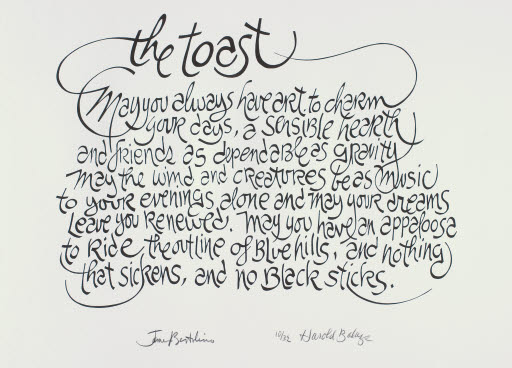 the toast
May you always have art to charm
your days, a sensible hearth
and friends as dependable as gravity
May the wind and creatures be as music
to your evenings alone and may your dreams
leave you renewed. May you have an appaloosa
to ride the outline of Blue hills, and nothing
that sickens, and no Black sticks.
10/32 Harold Balazs